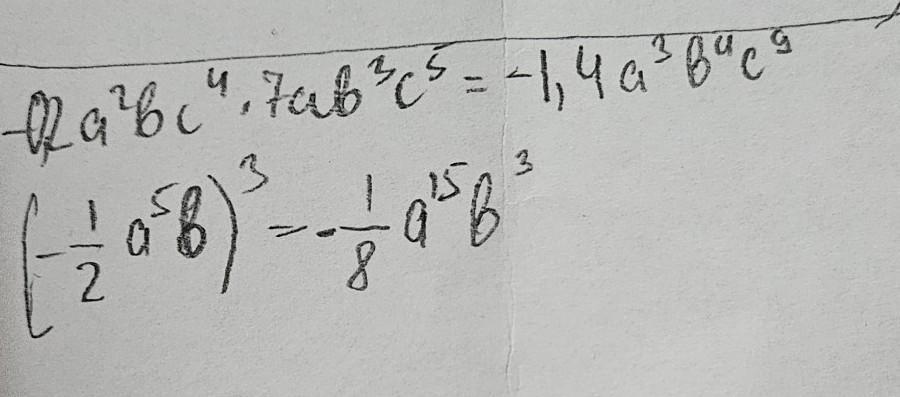 -0,2a²bc⁴·7ab³c⁵=-1,4a³b⁴c⁹
(-1/2 a⁵b)³=-1/8 a¹⁵b³